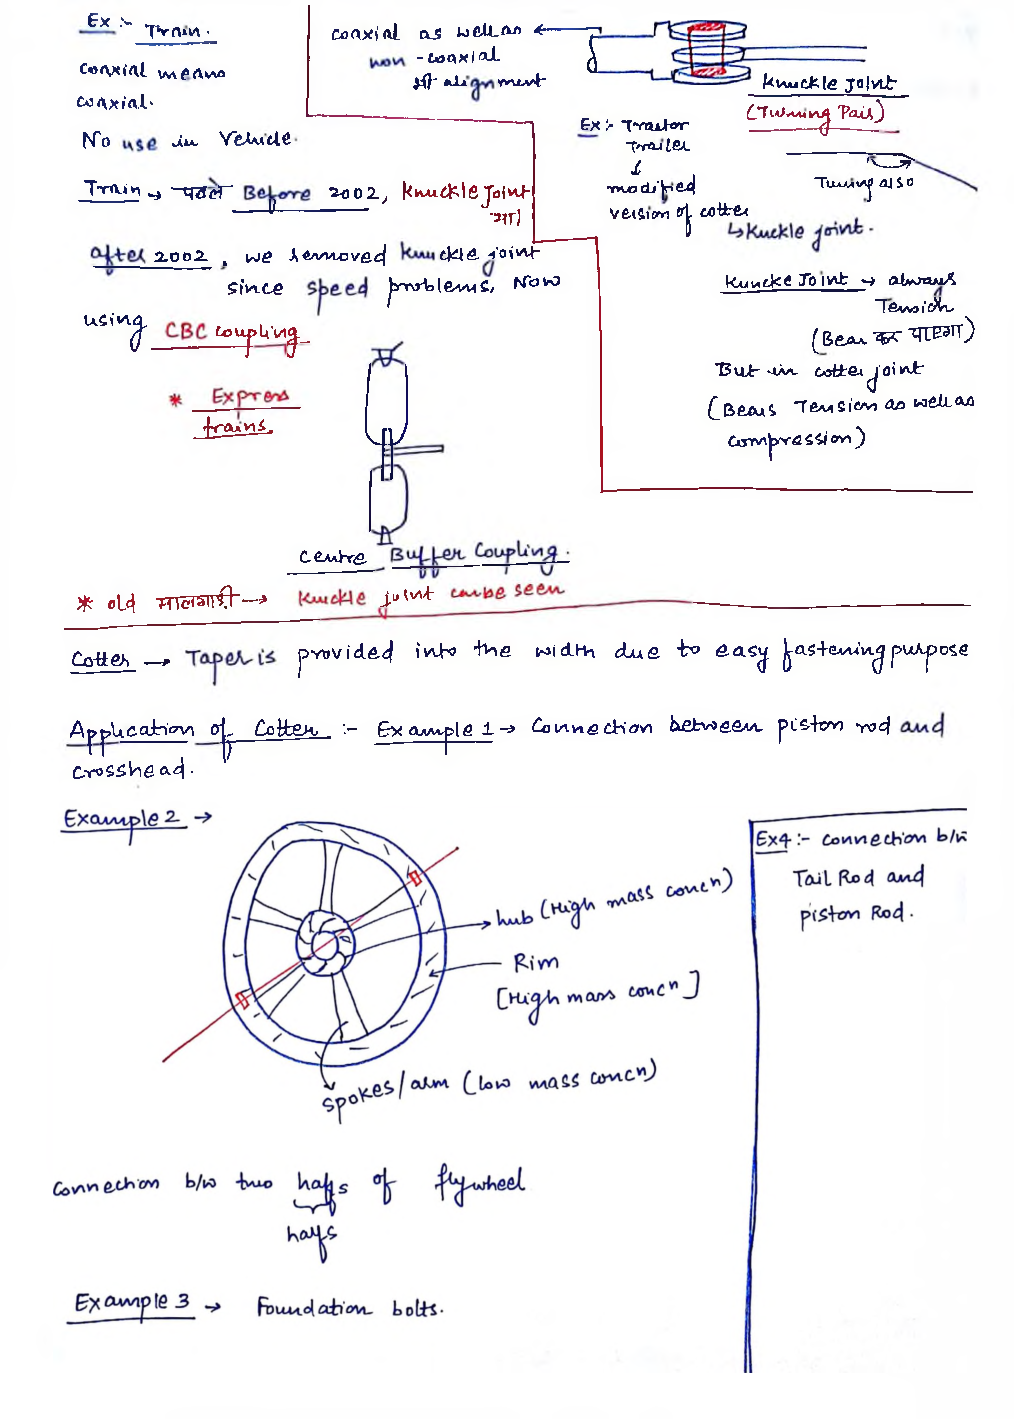 Ex :- Train.
coaxial means
coaxial.
No use in Vehicle.
Train → पहले Before 2002, Knuckle Joint
था।
after 2002, we removed knuckle joint
since speed problems, Now
using CBC coupling
* Express
trains.
Centre Buffer Coupling.
* old मालगाड़ी → Knuckle joint can be seen
coaxial as well as
non - coaxial
भी alignment
Knuckle Joint
(Turning Pair)
Ex :- Tractor
Trailer
↓
modified
version of cotter
↳ Kuckle joint.
Turing also
Kuncke Joint → always
Tension
(Bear कर पाएगा)
But in cotter joint
(Bears Tension as well as
compression)
Cotter → Taper is provided into the width due to easy fastening purpose
Application of Cotter :- Example 1 → Connection between piston rod and
crosshead.
Example 2 →
hub (High mass concn)
Rim
[High mass concn]
spokes/arm (low mass concn)
connection b/w two halfs of flywheel
halfs
Example 3 → Foundation bolts.
Ex4 :- connection b/w
Tail Rod and
piston Rod.